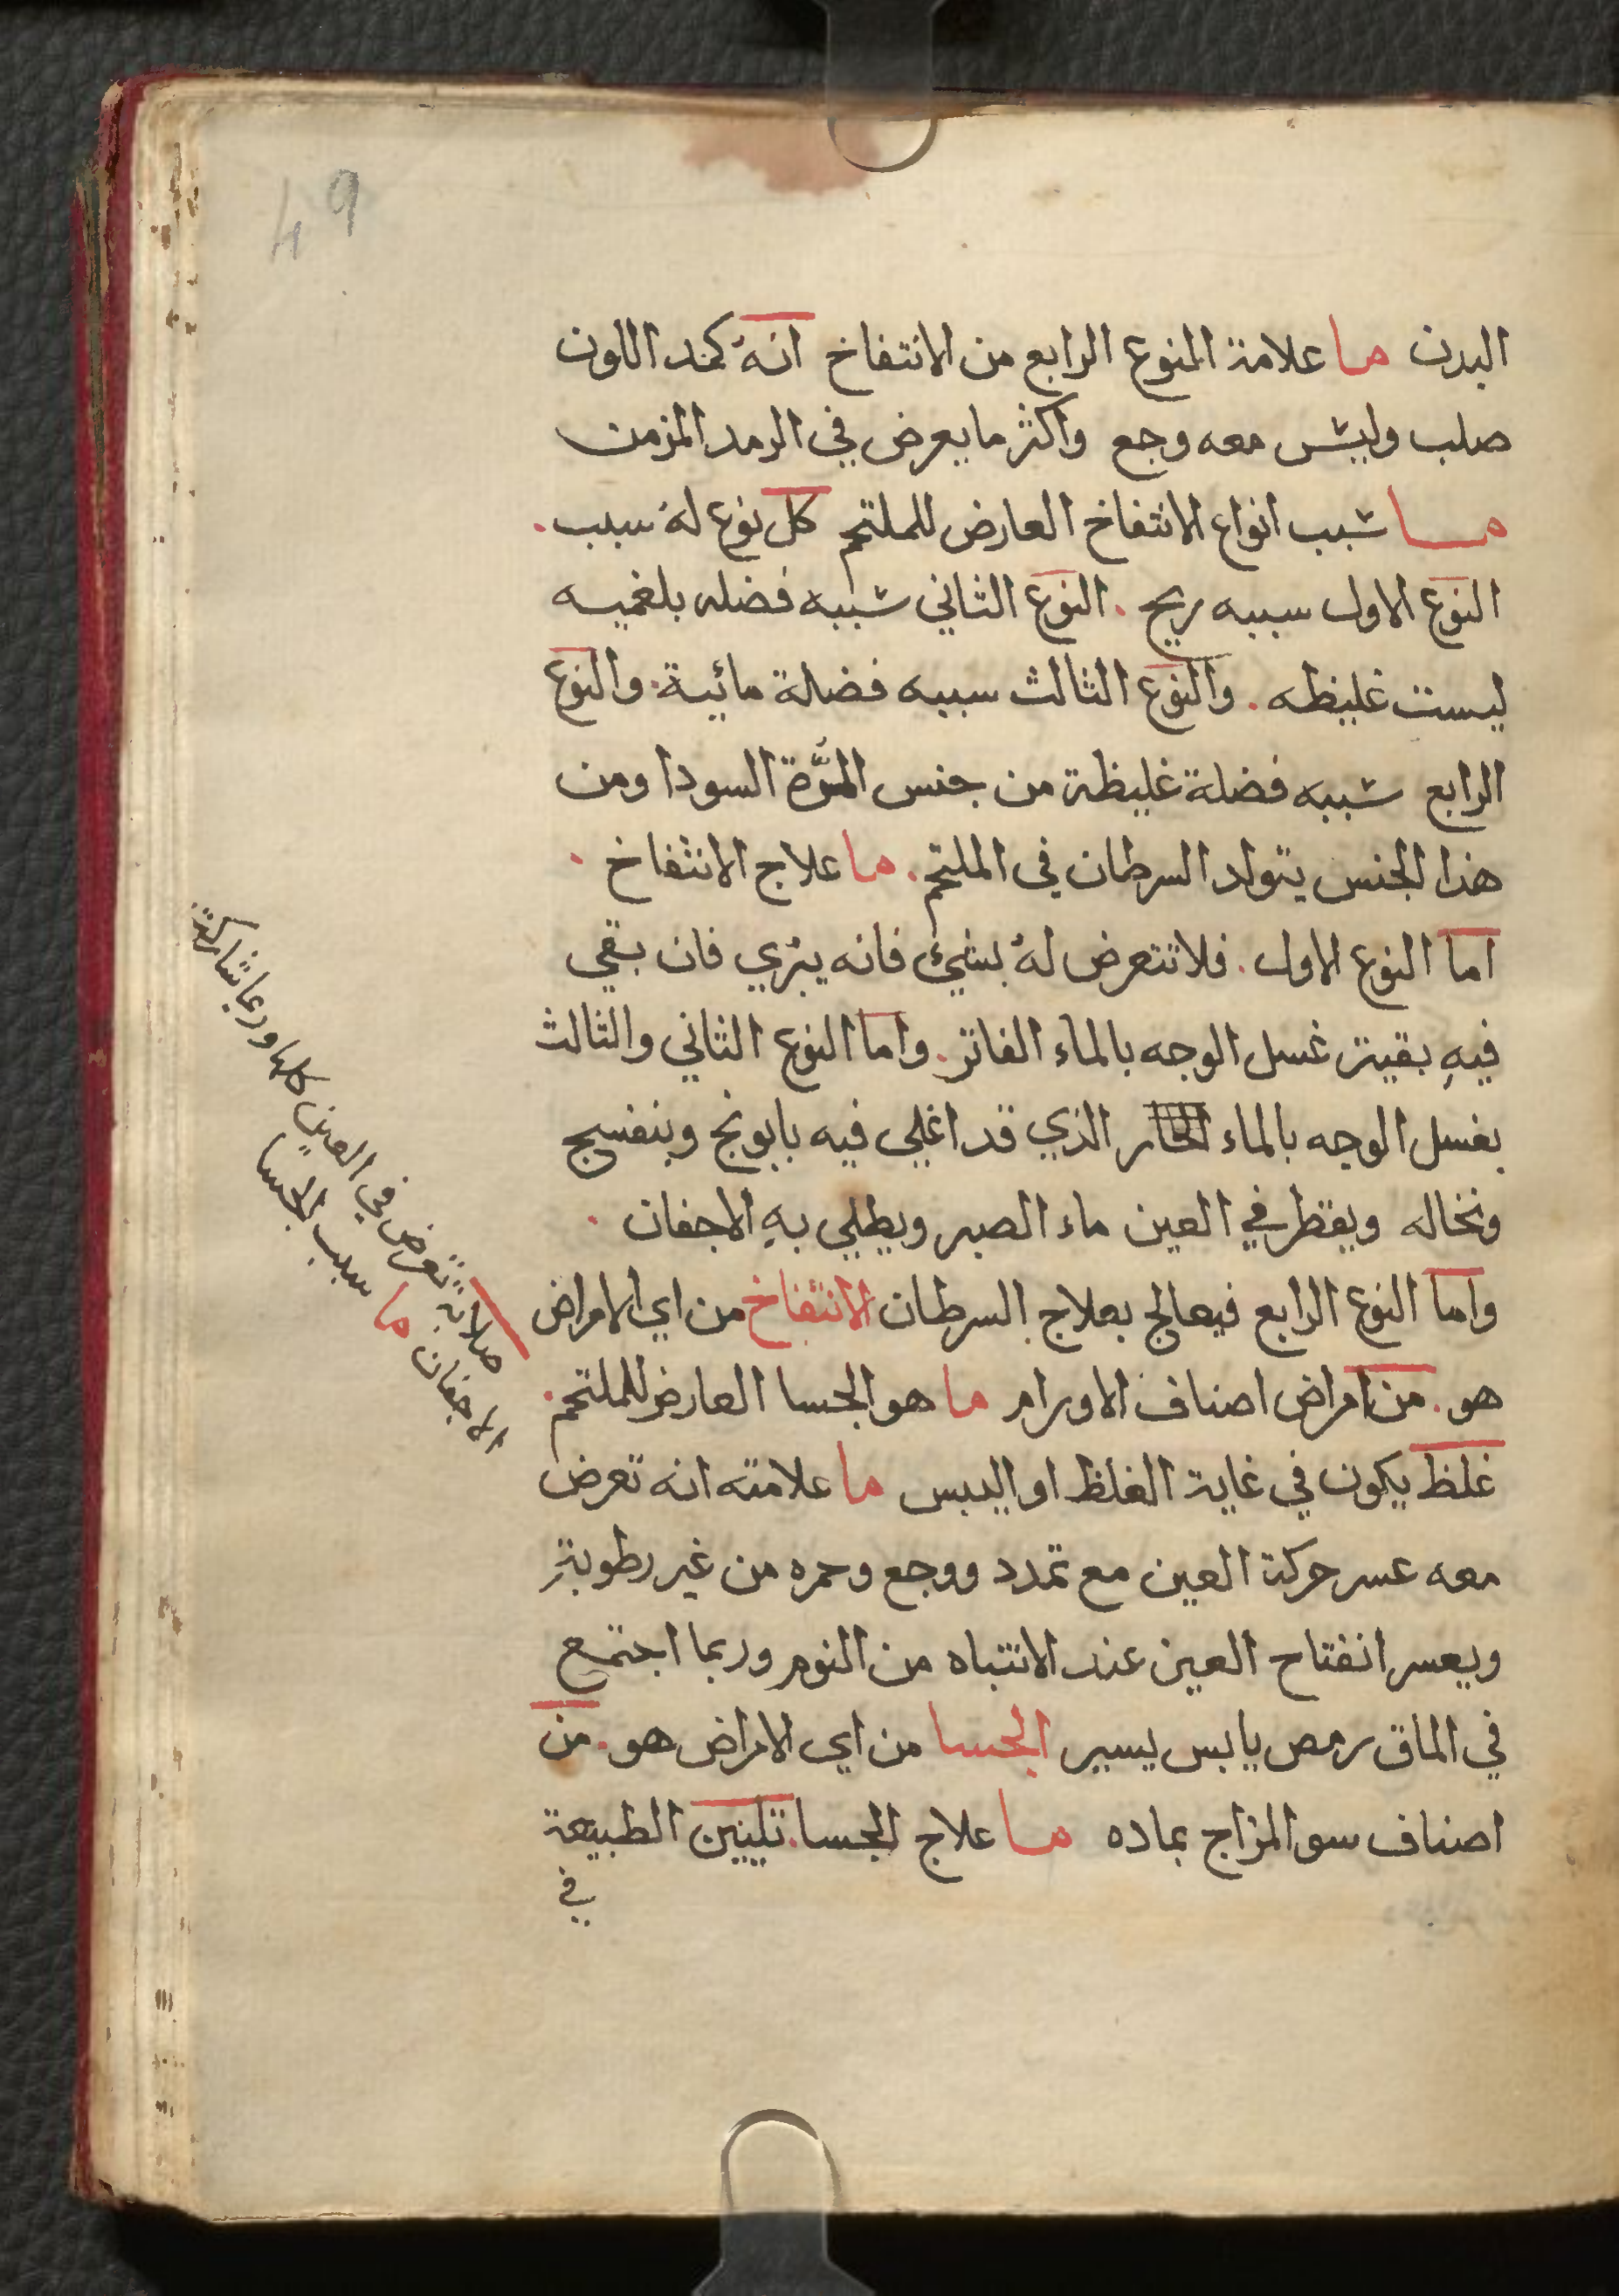 49
البدن ما علامة النوع الرابع من الانتفاخ انهُ كمد اللون
صلب وليس معه وجع واكثر ما يعرض في الرمد المزمن
ما سبب انواع الانتفاخ العارض للملتحم كل نوع لهُ سبب.
النوع الاول سببه ريح. النوع الثاني سببه فضله بلغميه
ليست غليظه. والنوع الثالث سببه فضلة مائية. والنوع
الرابع سببه فضلة غليظة من جنس المرَّة السودا ومن
هذا الجنس يتولد السرطان في الملتحم. ما علاج الانتفاخ.
اما النوع الاول. فلا تتعرض لهُ بشيئ فانه يبري فان بقي
فيهِ بقية غسل الوجه بالماء الفاتر. واما النوع الثاني والثالث
بغسل الوجه بالماء الحار الذي قد اغلي فيه بابونج وبنفسج
ونخاله ويقطر في العين ماء الصبر ويطلي بهِ الاجفان.
واما النوع الرابع فيعالج بعلاج السرطان الانتفاخ من اي الامراض
هو. من امراض اصناف الاورام ما هو الجسا العارض للملتحم.
غلظ يكون في غاية الغلظ او اليبس ما علامته انه تعرض
معه عسر حركة العين مع تمدد ووجع وحمره من غير رطوبةٍ
ويعسر انفتاح العين عند الانتباه من النوم وربما اجتمع
في الماق رمص يابس يسير الجسا من اي الامراض هو. من
اصناف سو المزاج بماده ما علاج الجسا. تليين الطبيعة
في
صلابة تعرض في العين كلها وربما شاركت
الاجفان ما سبب الجسا